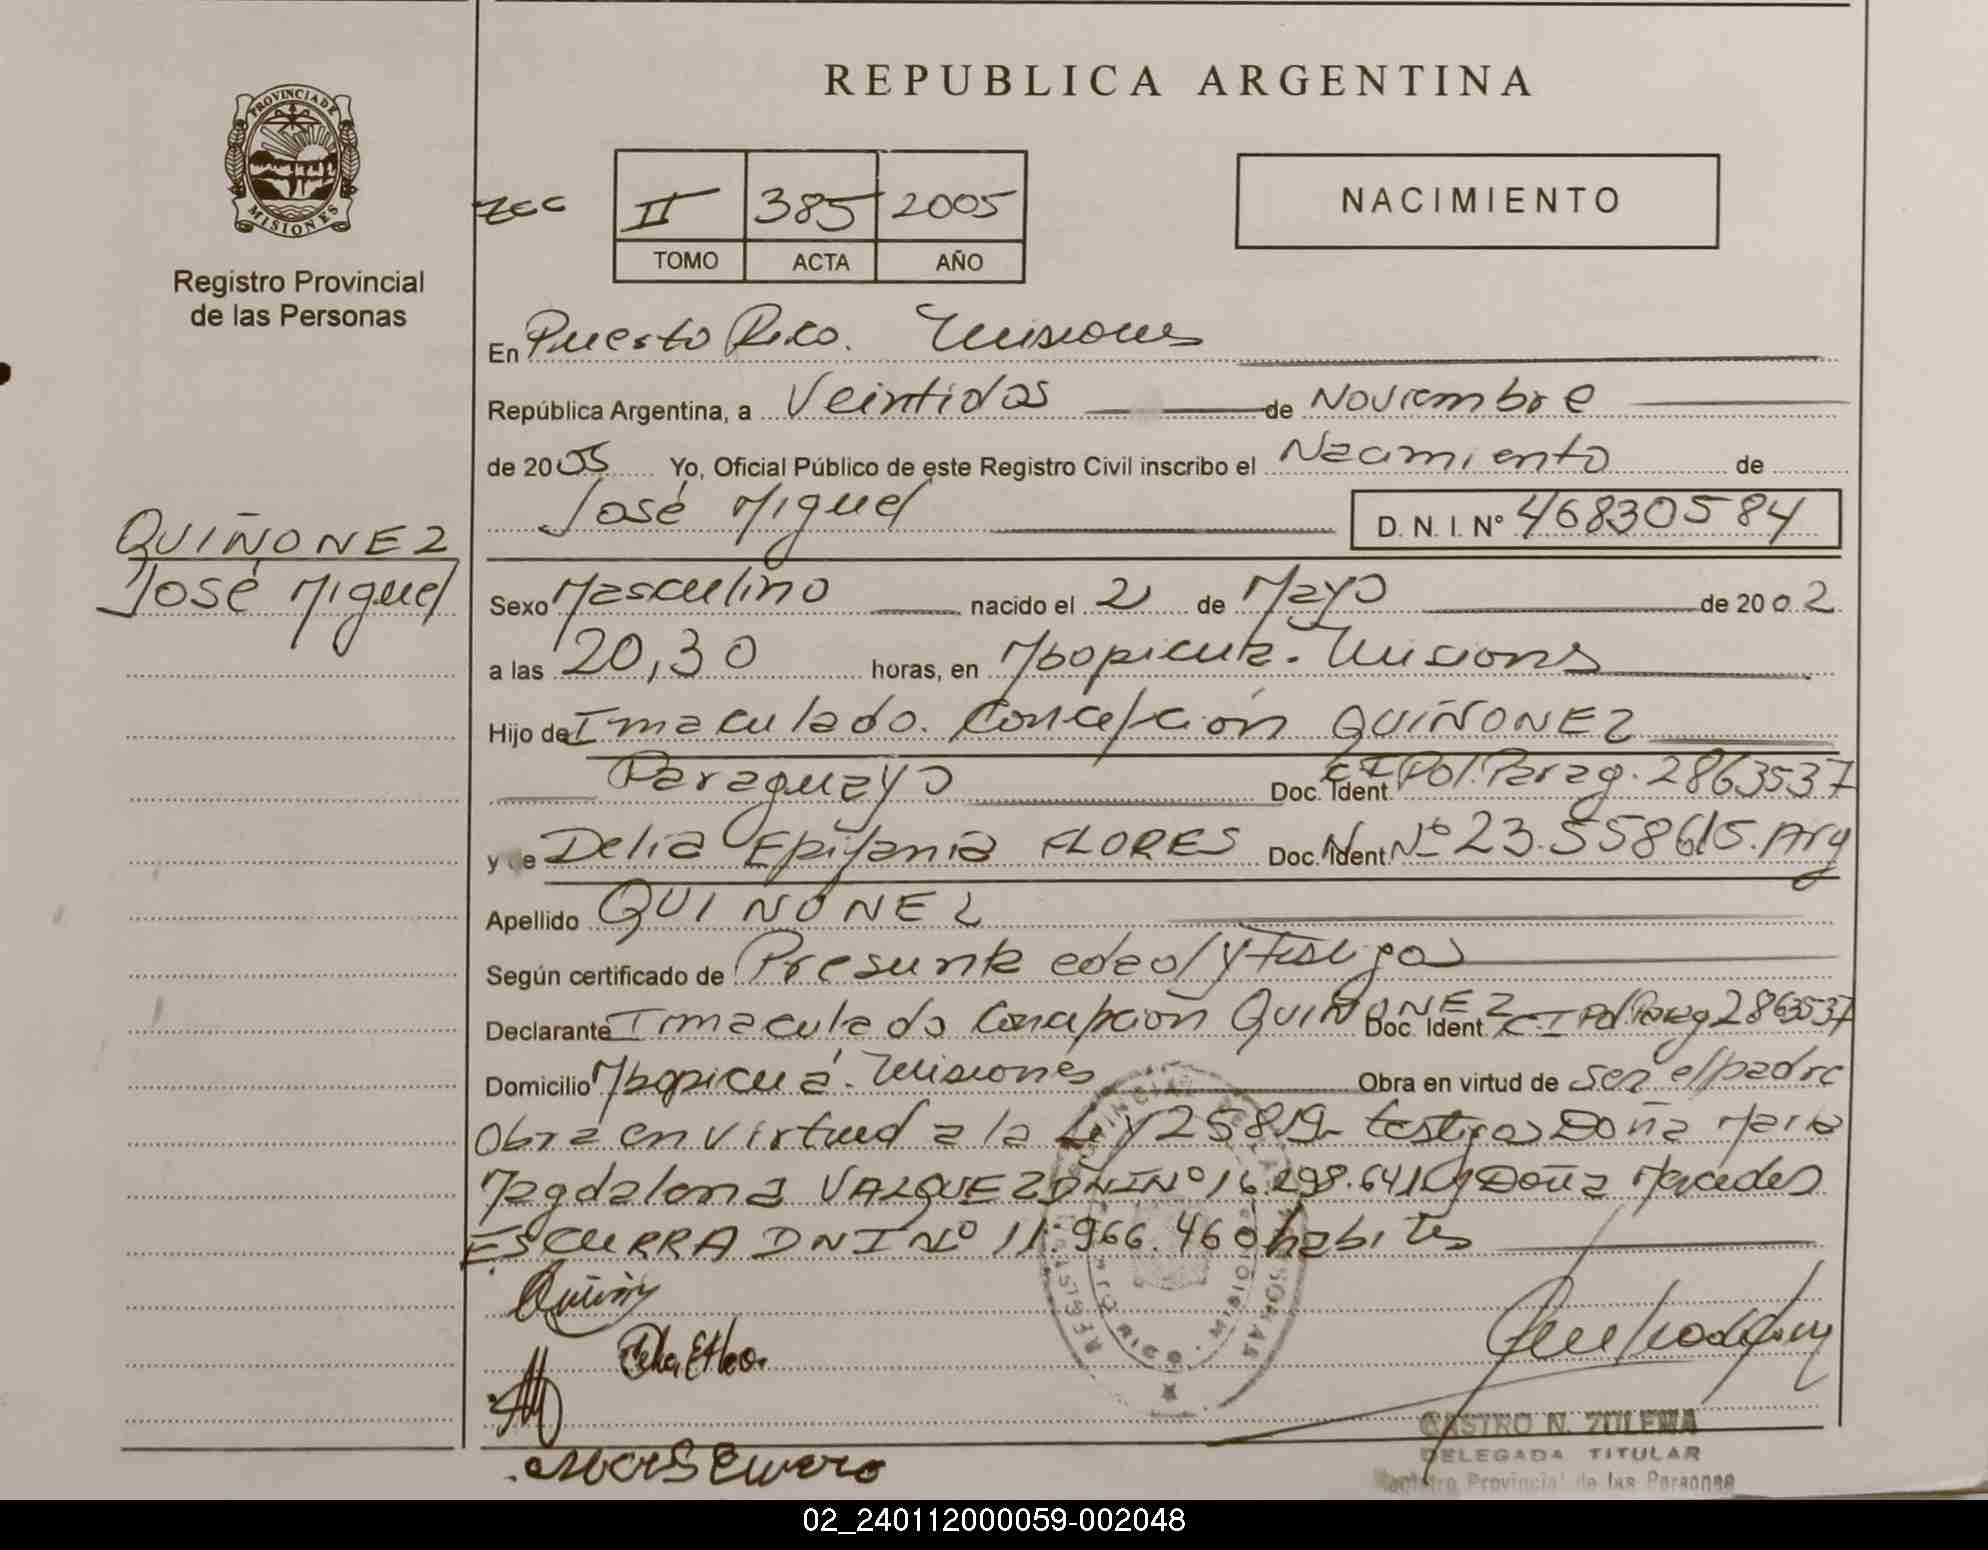 REPUBLICA ARGENTINA
PROVINCIA DE MISIONES
Registro Provincial
de las Personas
II 385 2005
TOMO ACTA AÑO
NACIMIENTO
En Puerto Rico. Misiones
República Argentina, a Veintidos de Noviembre
de 2005 Yo, Oficial Público de este Registro Civil inscribo el Nacimiento de
José Miguel D. N. I. Nº 46830584
QUIÑONEZ
José Miguel
Sexo Masculino nacido el 2 de Mayo de 2002
a las 20,30 horas, en Mbopicuá. Misiones
Hijo de Inmaculado. Concepción QUIÑONEZ
Paraguayo Doc. Ident. CI Pol. Parag. 2863537
y de Delia Epifania FLORES Doc. Ident. Nº 23.558615. Arg
Apellido QUIÑONEZ
Según certificado de Presunta edad y Testigos
Declarante Inmaculado Concepción QUIÑONEZ Doc. Ident. C.I Pol. Parag 2863537
Domicilio Mbopicuá. Misiones Obra en virtud de ser el padre
Obra en virtud a la Ley 25819- testigos Doña Maria
Magdalena VAZQUEZ DNI Nº 16.298.641 y Doña Mercedes
ESCURRA DNI Nº 11.966.460 habites
CASTRO N. ZULEMA
DELEGADA TITULAR
Registro Provincial de las Personas
02_240112000059-002048